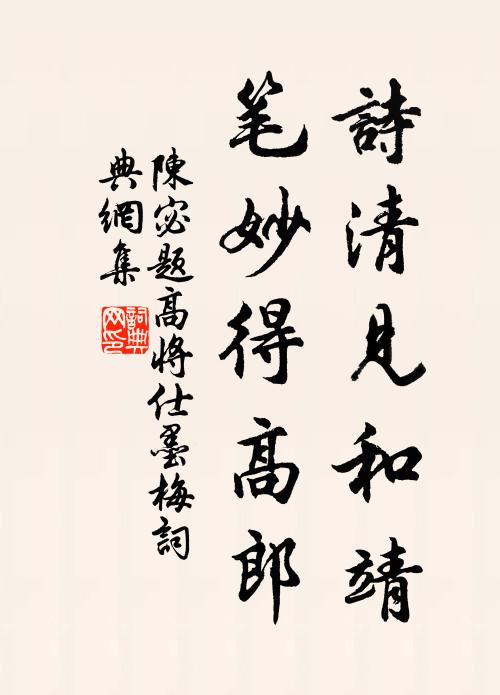 詩清見和靖
笔妙得高郎
陳宓題高將仕墨梅詞
典網集
詞典
网印